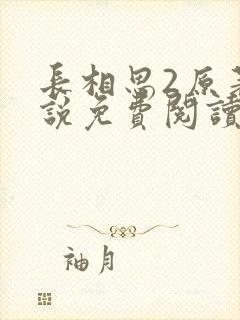 長相思2原著
說免費閱讀
袖月